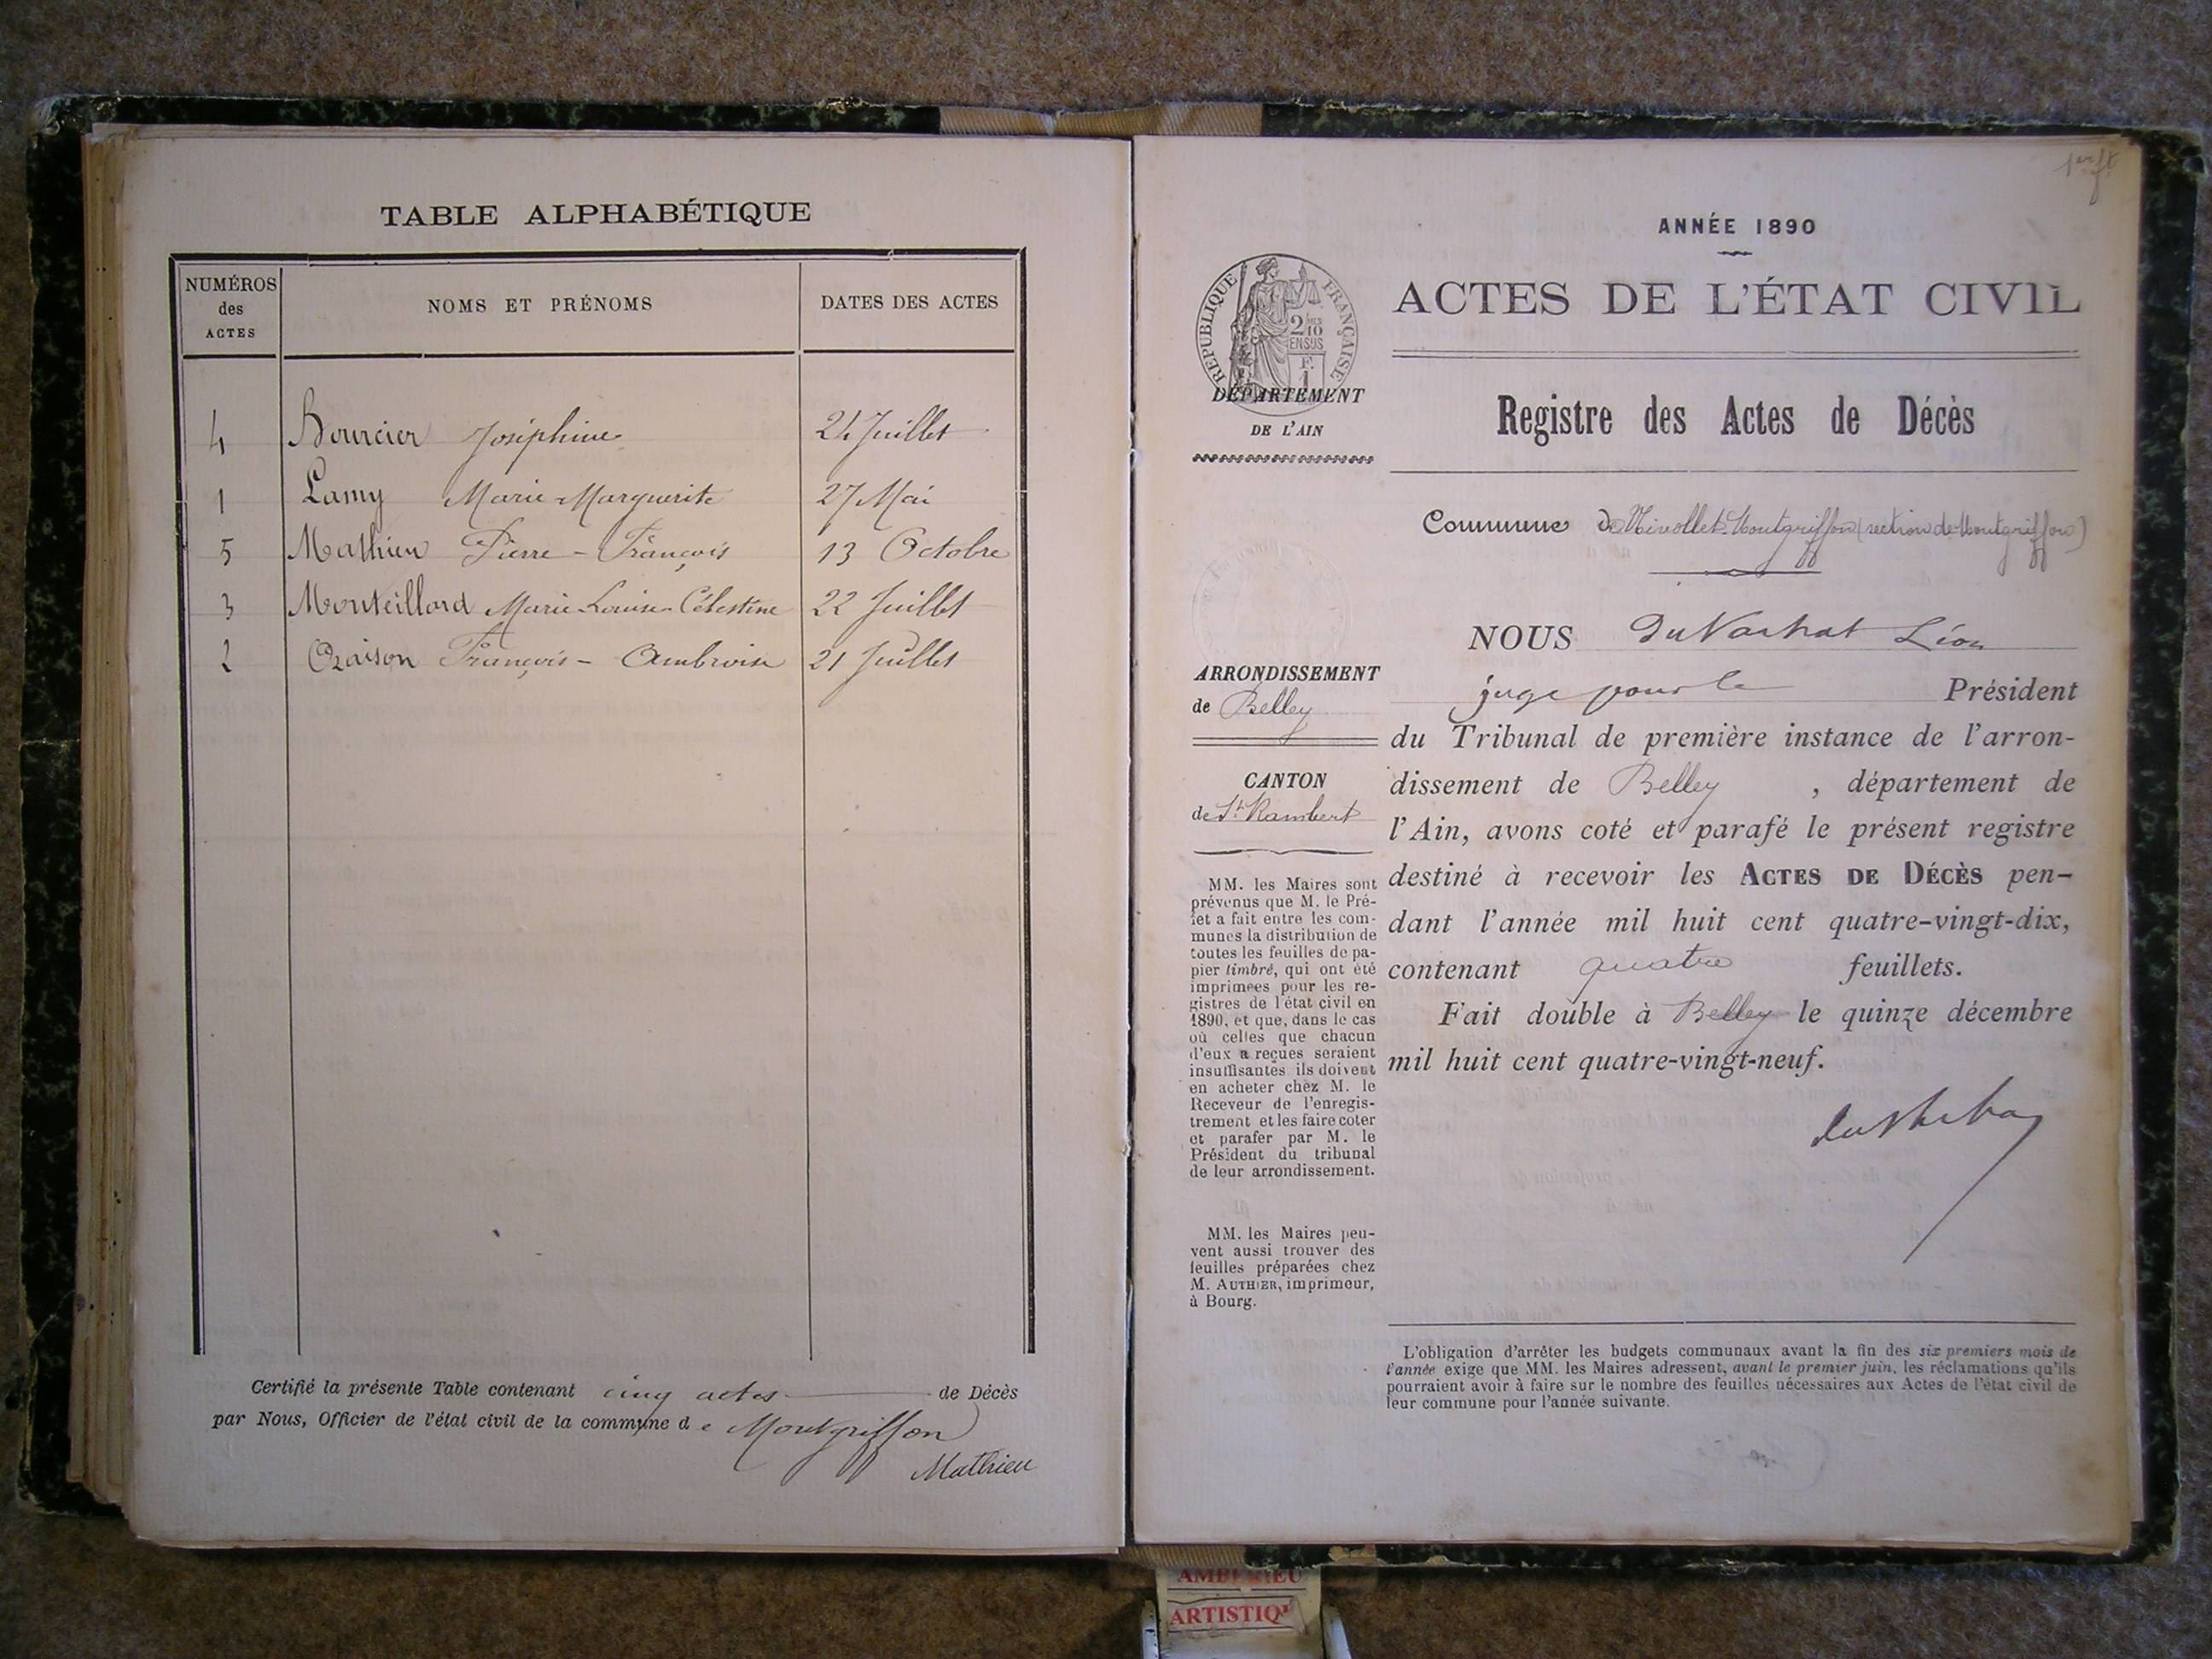 TABLE ALPHABÉTIQUE
NUMÉROS
des
ACTES
NOMS ET PRÉNOMS
DATES DES ACTES
4 Bourcier Joséphine 24 Juillet
1 Lamy Marie-Marguerite 27 Mai
5 Mathieu Pierre-François 13 Octobre
3 Monteillard Marie-Louise-Célestine 22 Juillet
2 Oraison François-Ambroise 21 Juillet
Certifié la présente Table contenant cinq actes de Décès
par Nous, Officier de l'état civil de la commune de Montgriffon
Mathieu
ANNÉE 1890
ACTES DE L'ÉTAT CIVIL
Registre des Actes de Décès
Commune de Nivollet-Montgriffon (section de Montgriffon)
NOUS Léon
juge pour le Président
du Tribunal de première instance de l'arron-
dissement de Belley, département de
l'Ain, avons coté et parafé le présent registre
destiné à recevoir les ACTES DE DÉCÈS pen-
dant l'année mil huit cent quatre-vingt-dix,
contenant quatre feuillets.
Fait double à Belley le quinze décembre
mil huit cent quatre-vingt-neuf.
L'obligation d'arrêter les budgets communaux avant la fin des six premiers mois de
l'année exige que MM. les Maires adressent, avant le premier juin, les réclamations qu'ils
pourraient avoir à faire sur le nombre des feuilles nécessaires aux Actes de l'état civil de
leur commune pour l'année suivante.
RÉPUBLIQUE FRANÇAISE
2/10mes
EN SUS
1 F.
DÉPARTEMENT
DE L'AIN
ARRONDISSEMENT
de Belley
CANTON
de St Rambert
MM. les Maires sont
prévenus que M. le Pré-
fet a fait entre les com-
munes la distribution de
toutes les feuilles de pa-
pier timbré, qui ont été
imprimées pour les re-
gistres de l'état civil en
1890, et que, dans le cas
où celles que chacun
d'eux a reçues seraient
insuffisantes ils doivent
en acheter chez M. le
Receveur de l'enregis-
trement et les faire coter
et parafer par M. le
Président du tribunal
de leur arrondissement.
MM. les Maires peu-
vent aussi trouver des
feuilles préparées chez
M. AUTHIER, imprimeur,
à Bourg.
AMBERIEU
ARTISTIQU